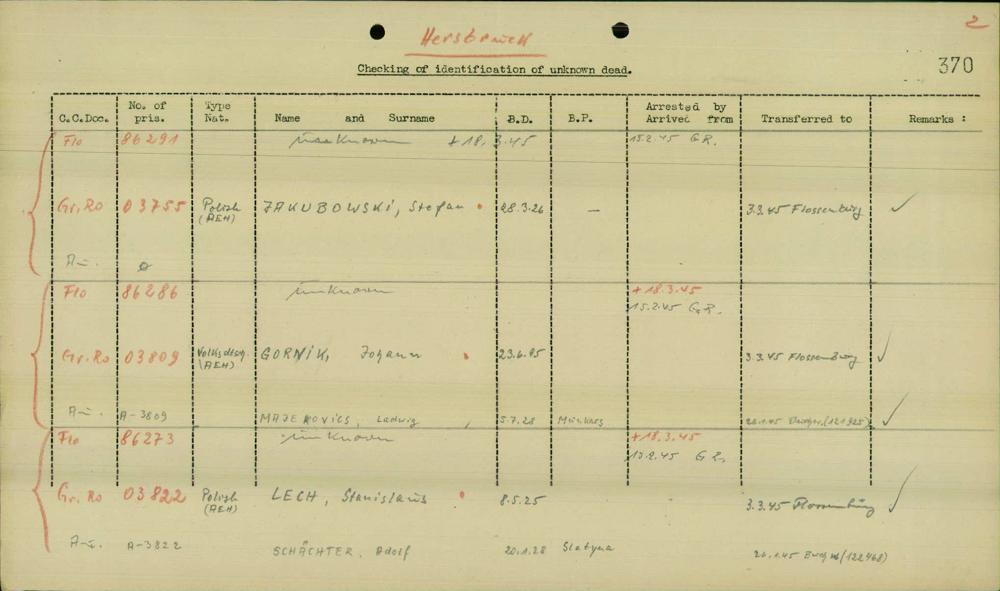 2
Hersbruck
Checking of identification of unknown dead.
370
C.C.Doc. No. of pris. Type Nat. Name and Surname B.D. B.P. Arrested by Arrived from Transferred to Remarks :
Flo 86291 unknown +18.3.45 15.2.45 G R.
Gr.Ro 03755 Polish (AEH) JAKUBOWSKI, Stefan 28.3.26 — 3.3.45 Flossenbürg
Au.
Flo 86286 unknown +18.3.45
15.2.45 G.R.
Gr.Ro 03809 (AEH) GORNIK, Johann 3.3.45 Flossenbürg
Au. A-3809 MAJEROVICS, Ludwig 5.7.28
Flo 86273 unknown +18.3.45
15.2.45 G R.
Gr.Ro 03822 Polish (AEH) LECH, Stanislaus 8.5.25 3.3.45 Flossenbürg
Au. A-3822 SCHÄCHTER, Adolf 20.1.28 Slatyna